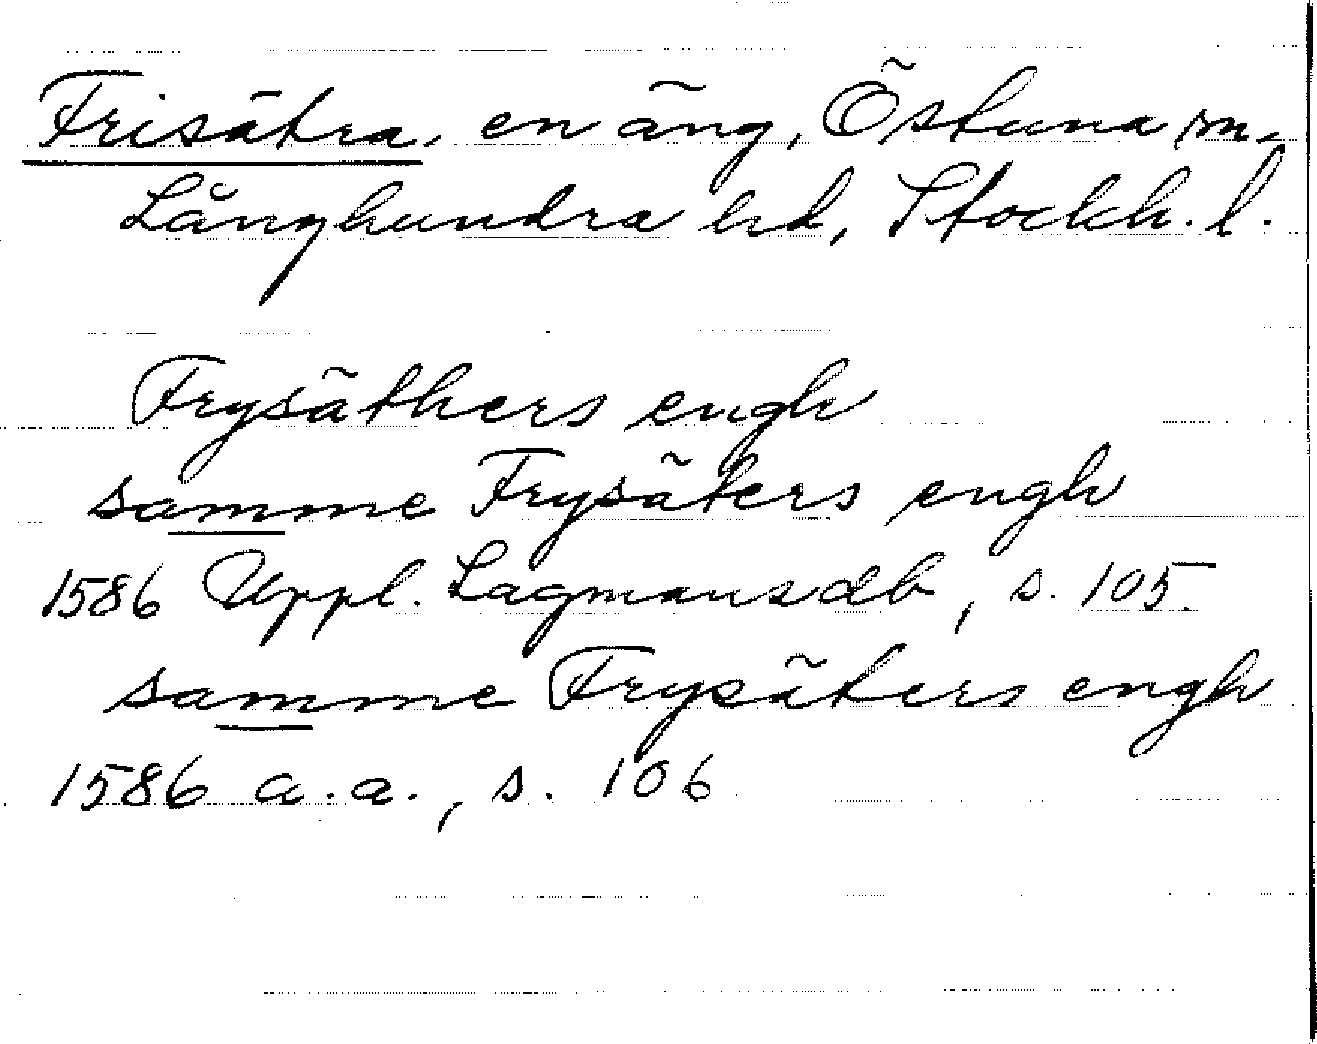 Frisätra, en äng, Östuna sn.
Långhundra hd, Stockh. l.
Frysäthers engh
samme Frysäters engh
1586 Uppl. Lagmansdb, s. 105.
samme Frysäters engh
1586 a.a., s. 106